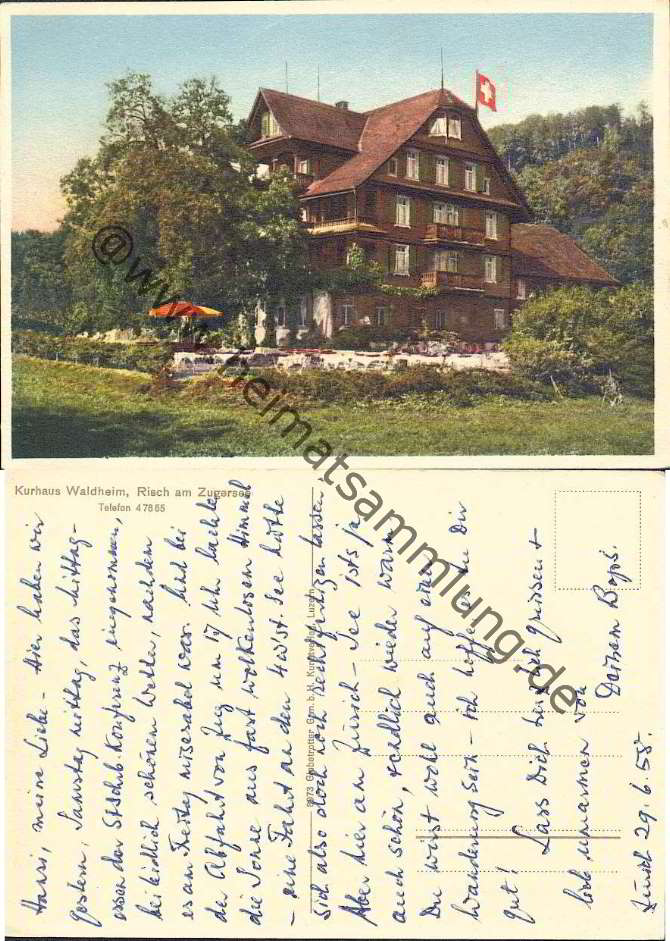 @ www.heimatsammlung.de
Kurhaus Waldheim, Risch am Zugersee
Telefon 47855
Hansi, meine Liebe – Hier haben wir
gestern, Samstag mittag, das Mittag-
essen der Konferenz eingenommen,
bei leidlich schönem Wetter, nachdem
es am Freitag miserabel war. Und bei
der Abfahrt von Zug um 17 Uhr lachte
die Sonne aus fast wolkenlosem Himmel
– eine Fahrt an den 4 See hätte
sich also doch noch rechtfertigen lassen
Aber hier am Zürich-See ists ja
auch schön, endlich wieder warm
Du wirst wohl auch auf einer
Wanderung sein – ich hoffe es tue Dir
gut! Lass Dich herzlich grüssen +
lieb umarmen von
Deinem
Zürich 29.6.58.
Globetrotter Gem. b. H. Kunstverlag, Luzern